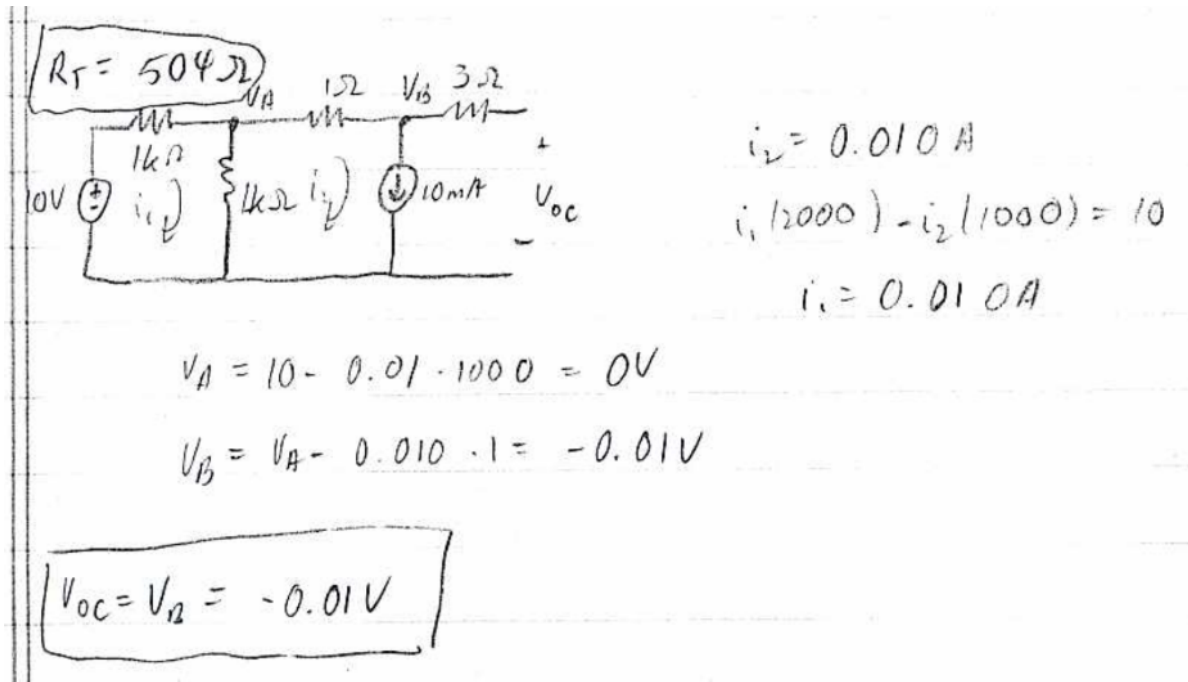 R_T = 504 Ω
V_A 1Ω V_B 3Ω
1kΩ
10V i₁ 1kΩ i₂ 10mA
+
V_oc
-
i₂ = 0.010 A
i₁(2000) - i₂(1000) = 10
i₁ = 0.010A
V_A = 10 - 0.01 · 1000 = 0V
V_B = V_A - 0.010 · 1 = -0.01V
V_oc = V_B = -0.01V